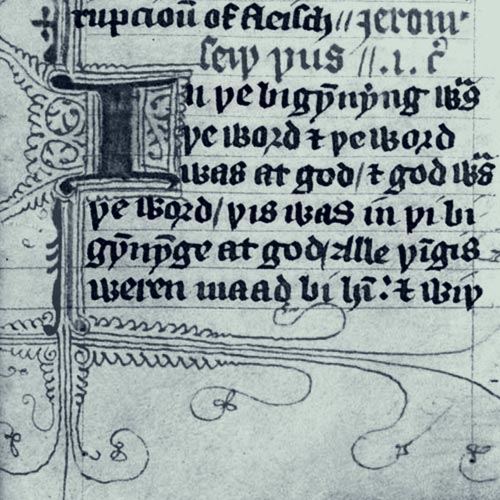 rupcioū of fleisch // Jerom
seiþ þus // .1. c̄
In þe bigȳnẏng wͣs
þe word ⁊ þe word
was at god / ⁊ god wͣs
þe word / þis was in þi bi
gẏnẏnge at god / Alle þīgis
weren maad bi hī : ⁊ wiþ